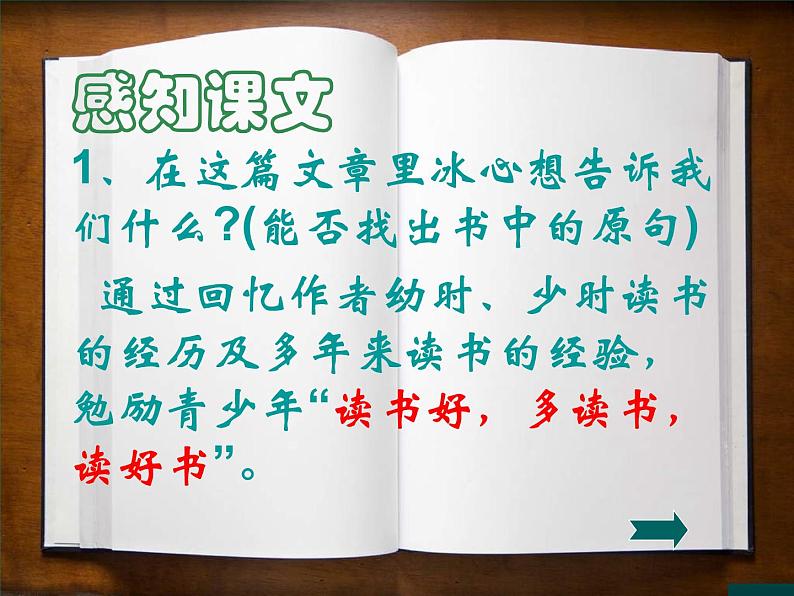 感知课文
1、在这篇文章里冰心想告诉我
们什么?(能否找出书中的原句)
通过回忆作者幼时、少时读书
的经历及多年来读书的经验，
勉励青少年“读书好，多读书，
读好书”。